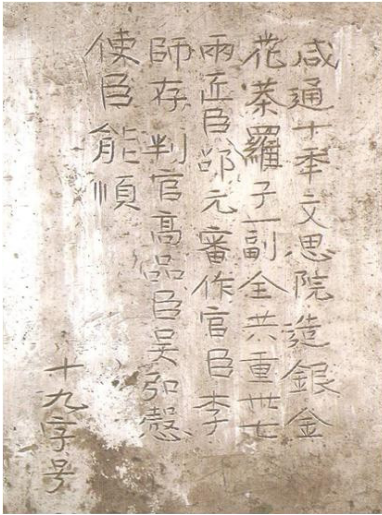 咸通十秊文思院造銀金
花茶羅子一副全共重卅七
兩匠臣邵元審作官臣李
師存判官高品臣吳弘慤
使臣能順
十九字号